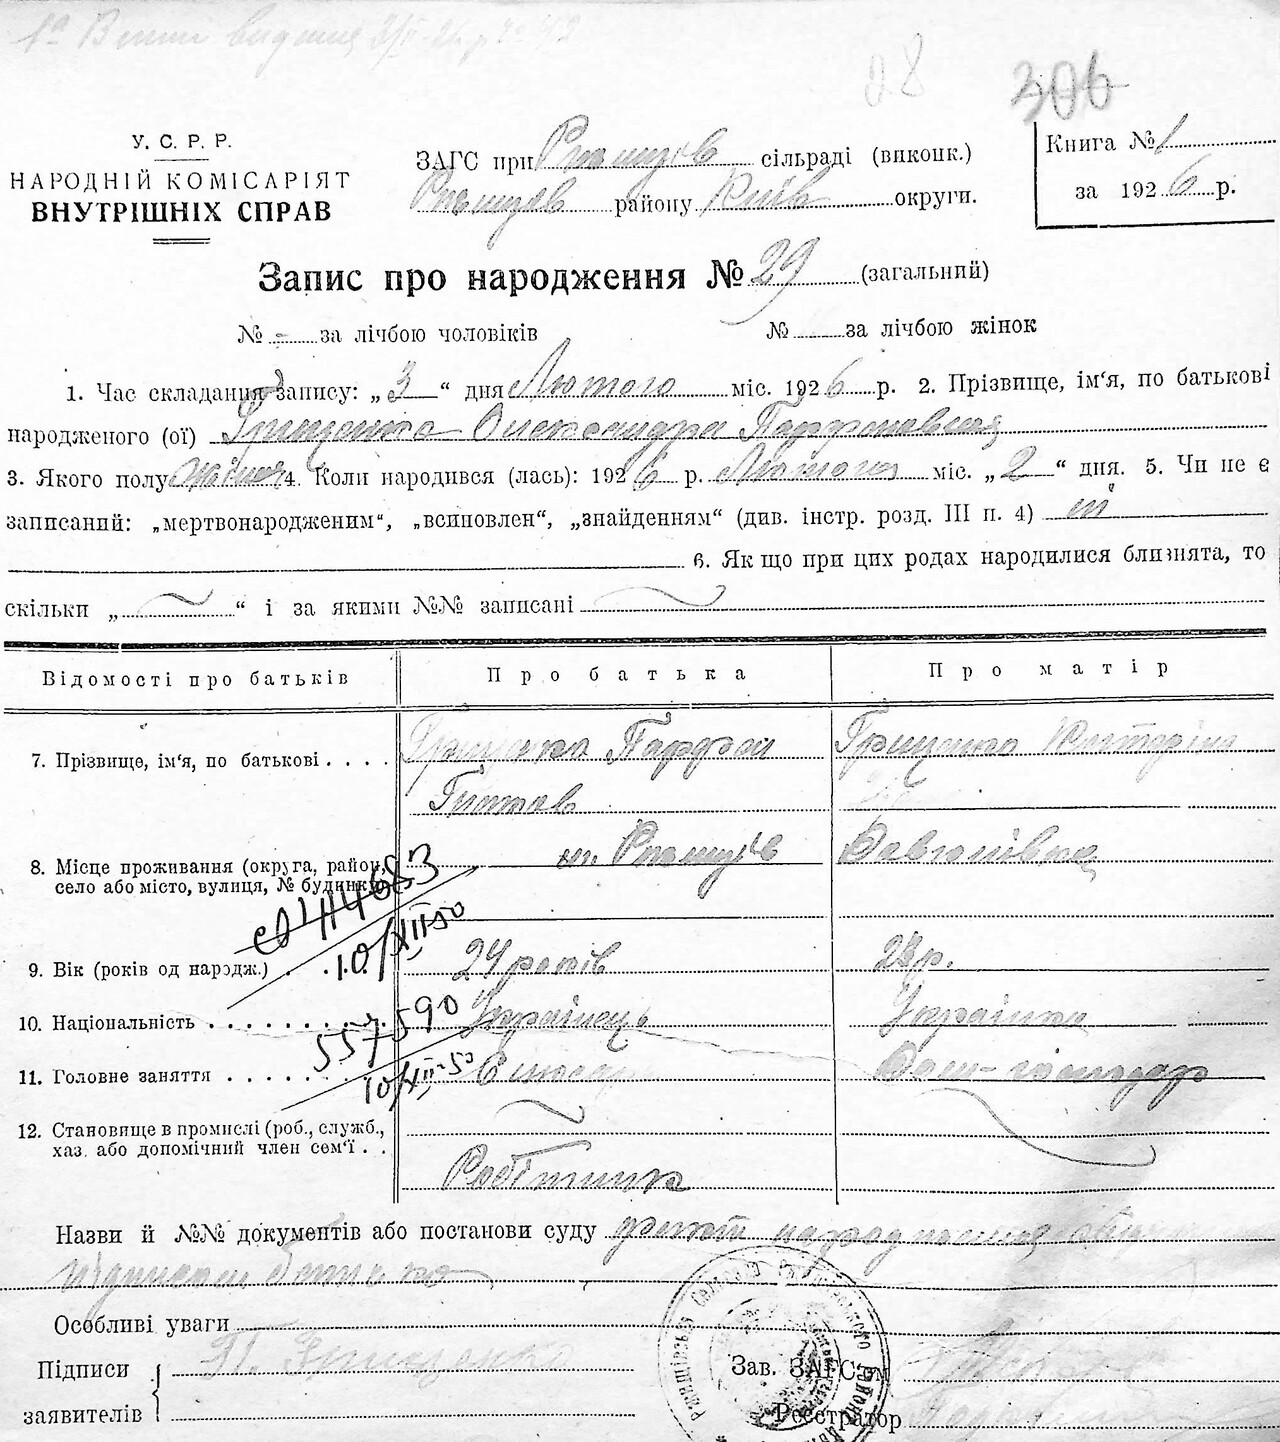 306
У. С. Р. Р.
НАРОДНІЙ КОМІСАРІЯТ
ВНУТРІШНІХ СПРАВ
ЗАГС при Ржищев сільраді (виконк.)
Ржищев району Київ округи.
Книга № 1
за 1926 р.
Запис про народження № 29 (загальний)
№ - за лічбою чоловіків № за лічбою жінок
1. Час складання запису: „3“ дня Лютого міс. 1926 р. 2. Прізвище, ім‘я, по батькові
народженого (ої) Грищенко Олександра Парфонівна
3. Якого полу жіноч 4. Коли народився (лась): 1926 р. Лютого міс. „2“ дня. 5. Чи не є
записаний: „мертвонародженим“, „всиновлен“, „знайденням“ (див. інстр. розд. III п. 4) ні
6. Як що при цих родах народилися близнята, то
скільки „ “ і за якими №№ записані
Відомості про батьків Про батька Про матір
7. Прізвище, ім‘я, по батькові . . . . Грищенко Парфон Грищенко Катеріна
8. Місце проживання (округа, район, м. Ржищів
село або місто, вулиця, № будинку)
10/XII 50
9. Вік (років од народж.) . 24 років 23 р.
10. Національність . . . . . . . . . . Українець Українка
557590
11. Головне заняття . . . . . . Слюсар Дом-господар
10/XII-50
12. Становище в промислі (роб., служб.,
хаз. або допомічний член сем‘ї . . Робітник
Назви й №№ документів або постанови суду
Особливі уваги
Підписи П. Грищенко Зав. ЗАГС‘ом
заявителів Реєстратор